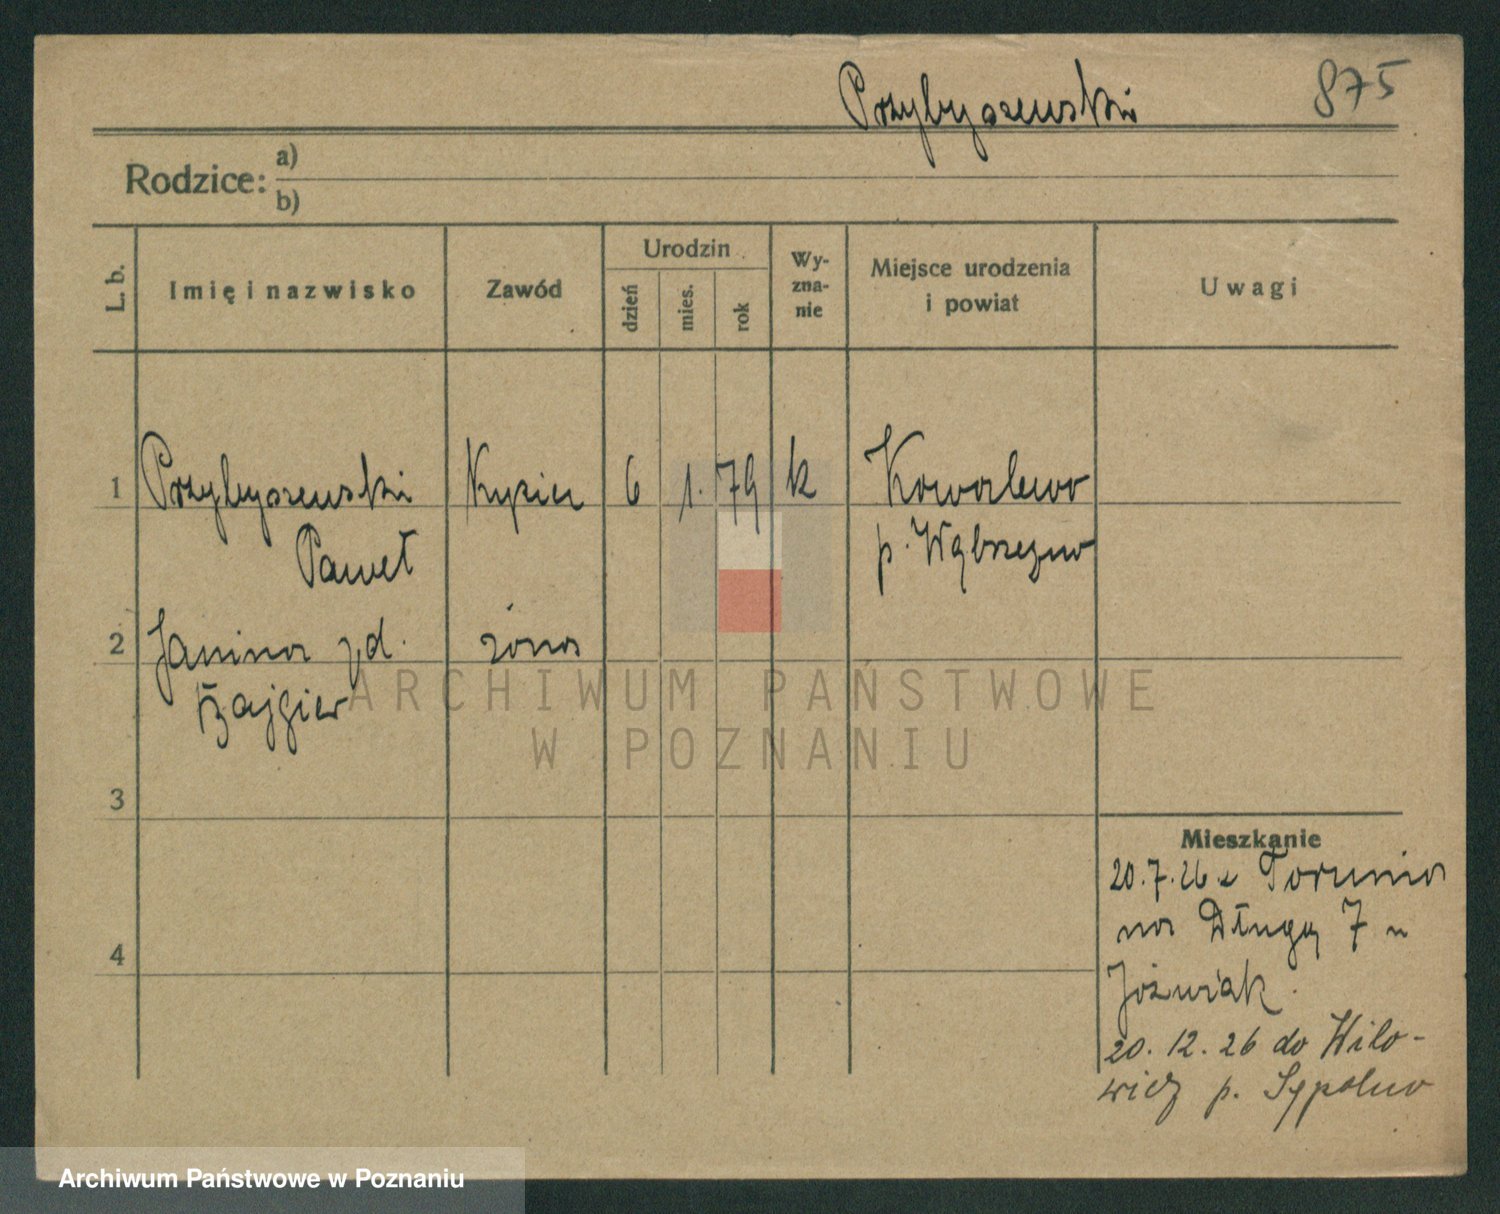 Przybyszewski 875
Rodzice: a)
b)
L. b. Imię i nazwisko Zawód Urodzin dzień mies. rok Wy-zna-nie Miejsce urodzenia i powiat Uwagi
1 Przybyszewski Kupiec 6 1. 79 k Kowalewo
Paweł p. Wąbrzeźno
2 Janina zd. żona
Bajgier
3
4
Mieszkanie
20.7.26 z Torunia
na Długą 7 u
Jóźwiak.
20.12.26 do
p. Sępolno
ARCHIWUM PAŃSTWOWE
W POZNANIU
Archiwum Państwowe w Poznaniu